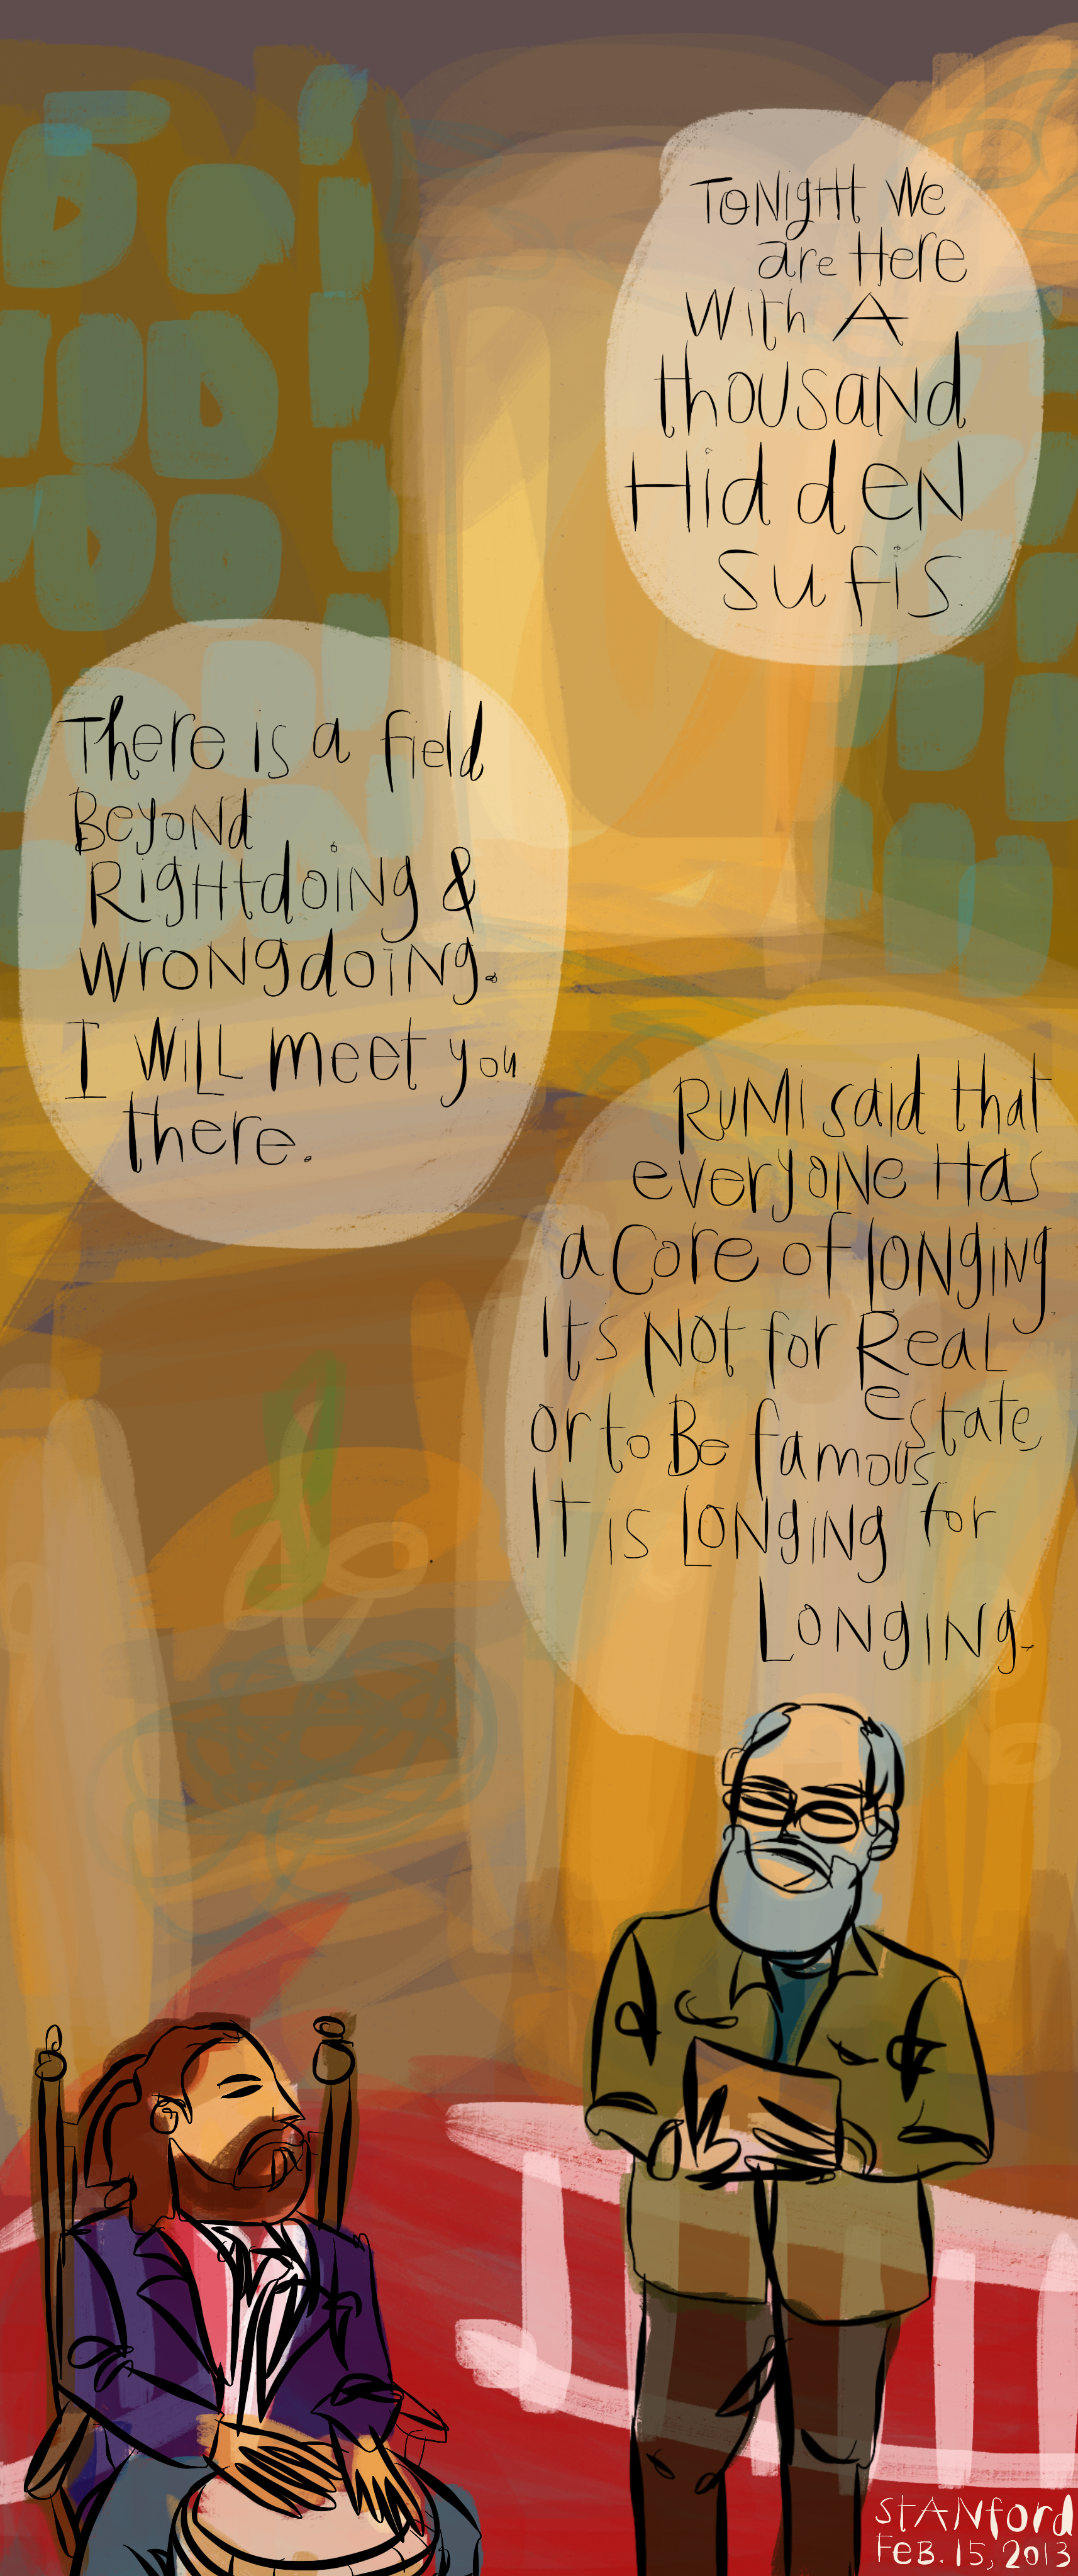 Tonight We
are Here
With A
thousand
Hidden
sufis.
There is a field
Beyond
Rightdoing &
wrongdoing.
I Will meet you
there.
Rumi said that
everyone Has
a Core of longing
It's Not for Real
estate
or to Be famous
It is Longing for
Longing.
Stanford
Feb. 15, 2013